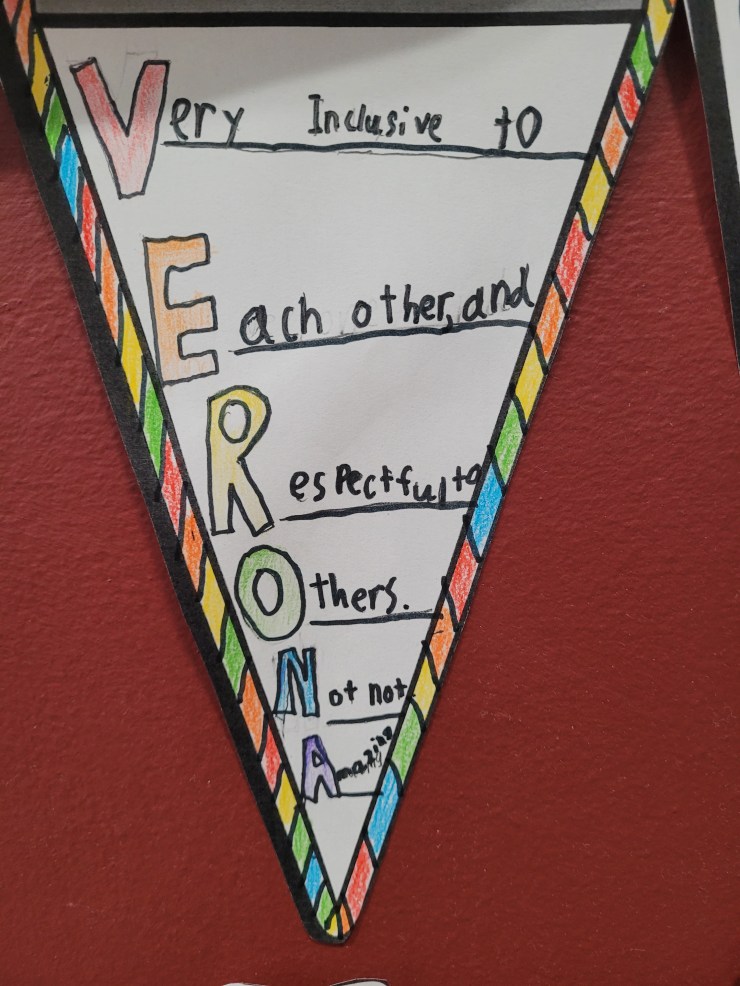 Very Inclusive to
Each other, and
Respectful to
Others.
Not not
Amazing